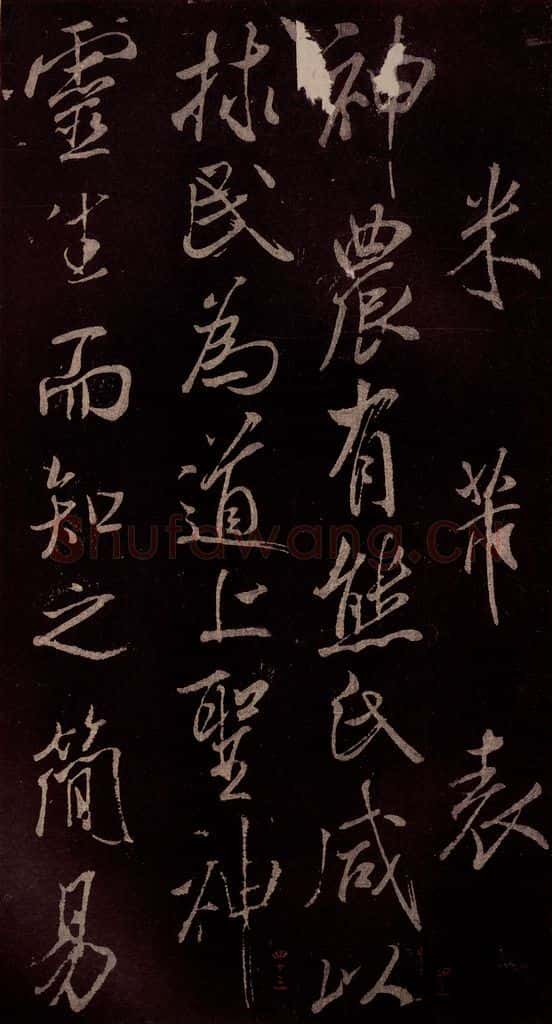 米芾表
神農有熊氏咸以
拯民為道上聖神
靈生而知之簡易
Shufawang.CN